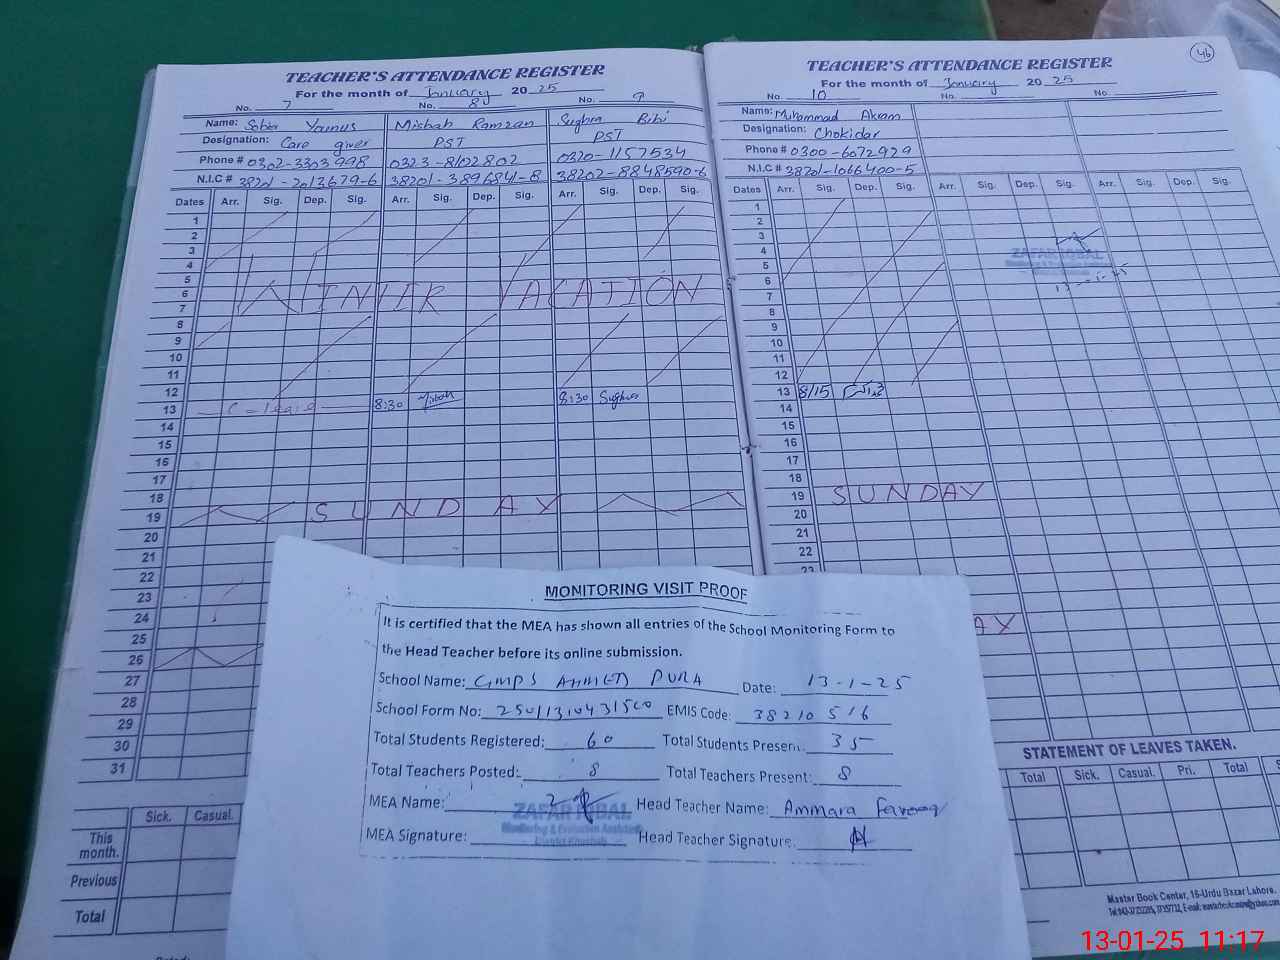 TEACHER'S ATTENDANCE REGISTER
For the month of January 2025
No. 7 No. 8 No. 9
Name: Sobia Younus Misbah Ramzan Sughra Bibi
Designation: Care giver PST PST
Phone # 0302-3303998 0323-8102802 0320-1157534
N.I.C # 38201-2013679-6 38201-3896841-8 38202-8848590-6
Dates Arr. Sig. Dep. Sig. Arr. Sig. Dep. Sig. Arr. Sig. Dep. Sig.
1
2
3
4
5
6 WINTER VACATION
7
8
9
10
11
12
13 C-leave 8:30 Misbah 8:30 Sughra
14
15
16
17
18
19 SUNDAY
20
21
22
23
24
25
26
27
28
29
30
31
Sick. Casual.
This month.
Previous
Total
46
TEACHER'S ATTENDANCE REGISTER
For the month of January 2025
No. 10 No. No.
Name: Muhammad Akram
Designation: Chokidar
Phone # 0300-6072929
N.I.C # 38201-1066400-5
Dates Arr. Sig. Dep. Sig. Arr. Sig. Dep. Sig. Arr. Sig. Dep. Sig.
1
2
3
4
5
6
7
8
9
10
11
12
13 8/15
14
15
16
17
18
19 SUNDAY
20
21
22
23
AY
ZAFAR IQBAL
Monitoring & Evaluation Assistant
13-1-25
STATEMENT OF LEAVES TAKEN.
Total Sick. Casual. Pri. Total
Master Book Center, 16-Urdu Bazar Lahore.
MONITORING VISIT PROOF
It is certified that the MEA has shown all entries of the School Monitoring Form to
the Head Teacher before its online submission.
School Name: GMPS AHMED PURA Date: 13-1-25
School Form No: 25011310431500 EMIS Code: 38210516
Total Students Registered: 60 Total Students Present: 35
Total Teachers Posted: 8 Total Teachers Present: 8
MEA Name: Head Teacher Name: Ammara Farooq
ZAFAR IQBAL
Monitoring & Evaluation Assistant
District Khushab
MEA Signature: Head Teacher Signature:
13-01-25 11:17